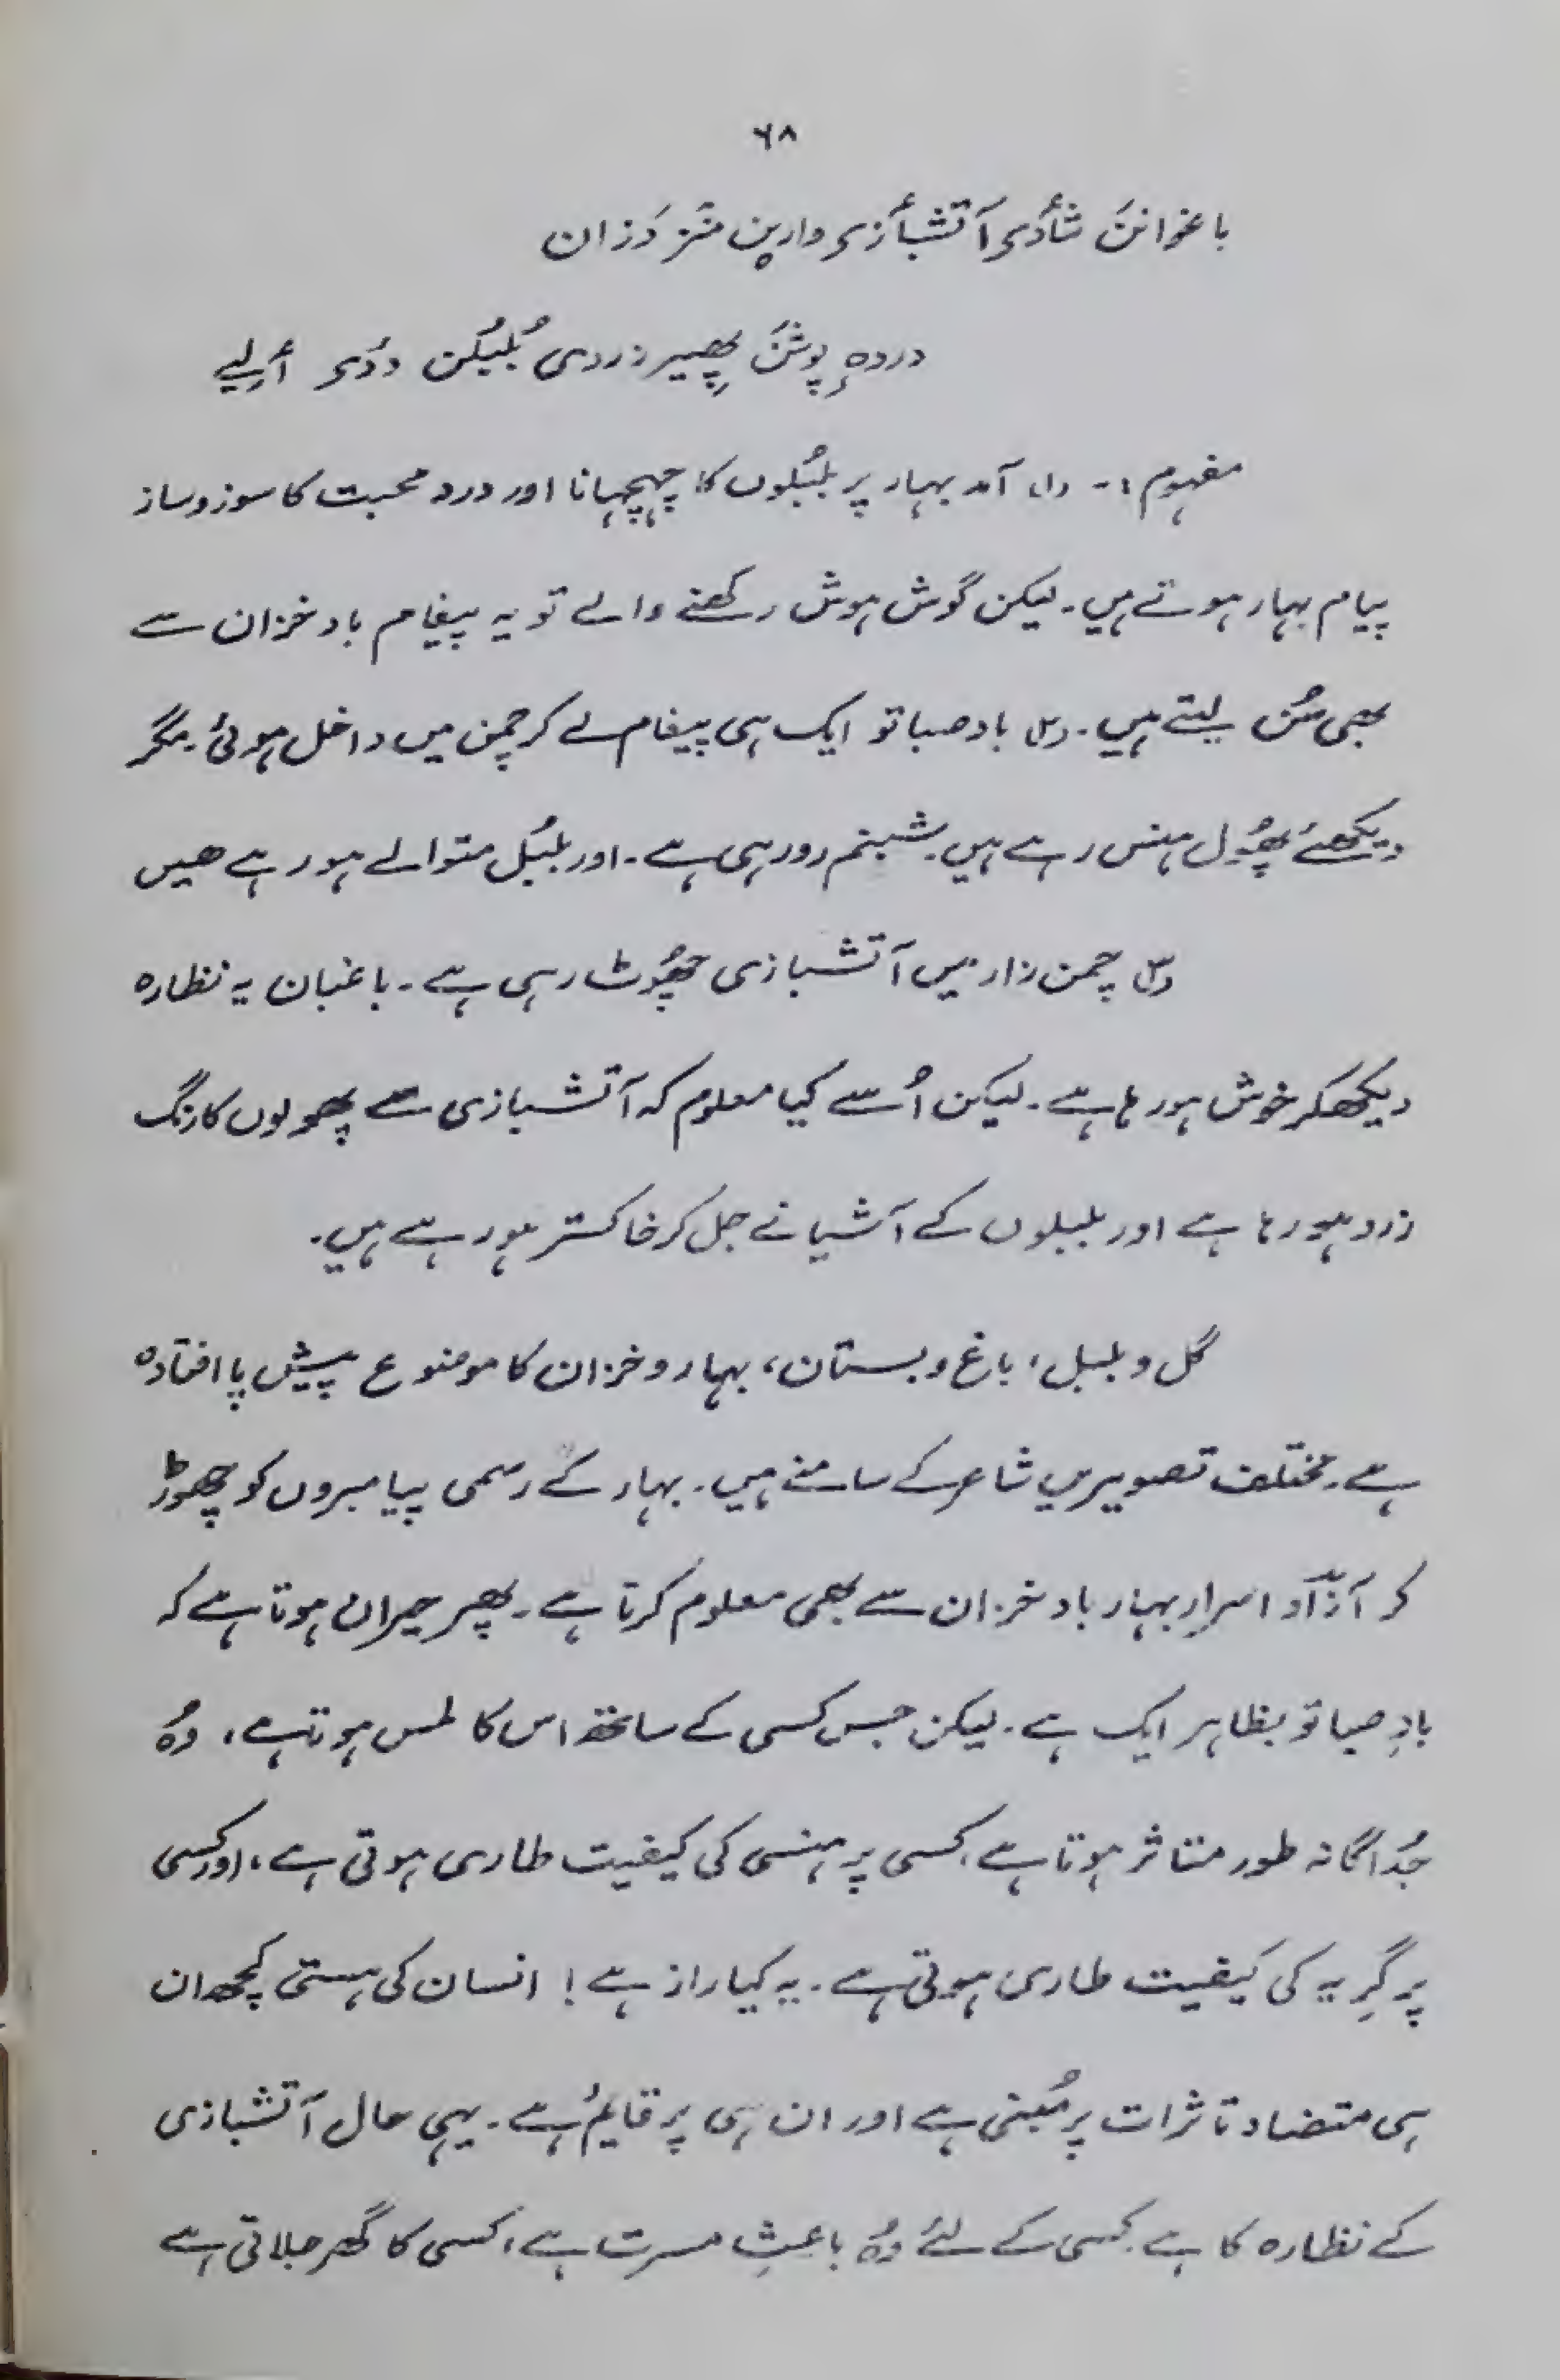 ۶۸
باغوانن شأدی آتشبأزی وارین منز دَزان
دردہِ پوشنَ پھِیر زردی بُلبُلن ددی أولی
مفہوم :- (۱) آمد بہار پر بلبُلوں کا چہچہانا اور درد محبت کا سوز و ساز
پیام بہار ہوتے ہیں۔ لیکن گوش ہوش رکھنے والے تو یہ پیغام باد خزان سے
بھی سُن لیتے ہیں۔ (۲) باد صبا تو ایک ہی پیغام لے کر چمن میں داخل ہوئی۔ مگر
دیکھئے پھُول ہنس رہے ہیں۔ شبنم رو رہی ہے۔ اور بلبُل متوالے ہو رہے ھیں
(۳) چمن زار میں آتشبازی چھُوٹ رہی ہے۔ باغبان یہ نظارہ
دیکھکر خوش ہو رہا ہے۔ لیکن اُسے کیا معلوم کہ آتشبازی سے پھولوں کا رنگ
زرد ہو رہا ہے اور بلبلوں کے آشیانے جل کر خاکستر ہو رہے ہیں۔
گل و بلبل، باغ و بستان، بہار و خزان کا موضوع پیش پا افتادہ
ہے۔ مختلف تصویریں شاعر کے سامنے ہیں۔ بہار کے رسمی پیامبروں کو چھوڑ
کر آزاد اسرارِ بہار باد خزان سے بھی معلوم کرتا ہے۔ پھر حیران ہوتا ہے کہ
بادِ صبا تو بظاہر ایک ہے۔ لیکن جس کسی کے ساتھ اس کا لمس ہوتا ہے، وہُ
جُداگانہ طور متاثر ہوتا ہے، کسی پر ہنسی کی کیفیت طاری ہوتی ہے، اور کسی
پر گرِیہ کی کیفیت طاری ہوتی ہے۔ یہ کیا راز ہے! انسان کی ہستی کچھ ان
ہی متضاد تاثرات پر مُبنی ہے اور ان ہی پر قایم ہے۔ یہی حال آتشبازی
کے نظارہ کا ہے۔ کسی کے لئے وہُ باعثِ مسرت ہے، کسی کا گھر جلاتی ہے